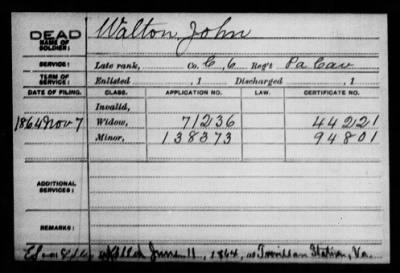 DEAD
NAME OF SOLDIER: Walton, John
SERVICE: Late rank, Co. C, 6 Reg't Pa Cav
TERM OF SERVICE: Enlisted , 1 Discharged , 1
DATE OF FILING. CLASS. APPLICATION NO. LAW. CERTIFICATE NO.
Invalid,
1864 Nov 7 Widow, 71236 44221
Minor, 138373 94801
ADDITIONAL SERVICES:
REMARKS:
killed June 11, 1864, at Station, Va.